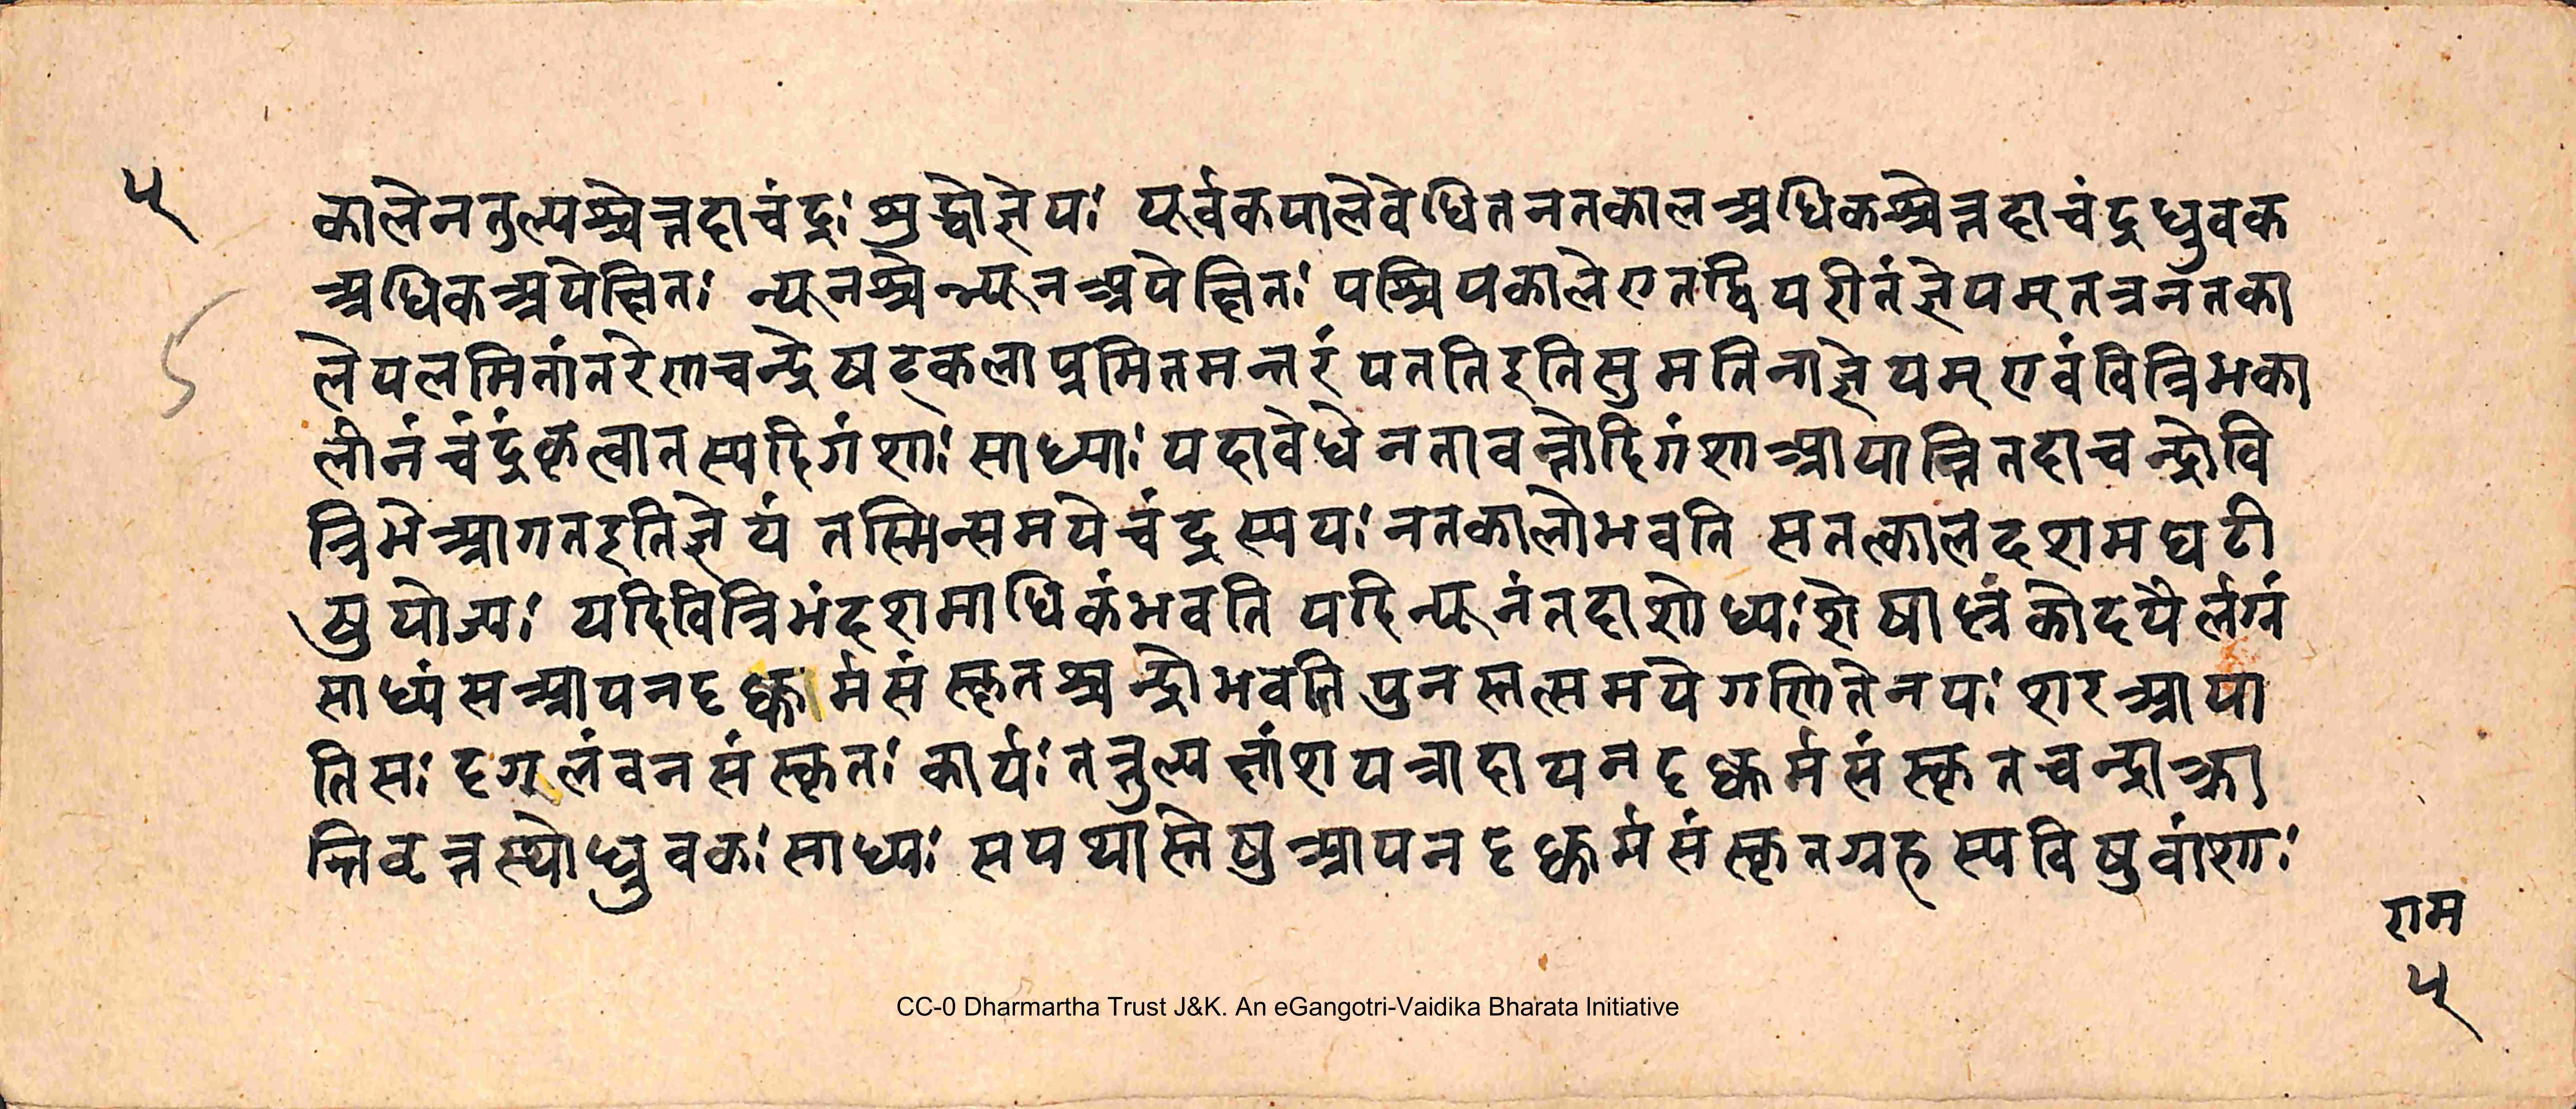 ५
कालेनतुल्यश्चेत्तदाचंद्रः शुद्धोज्ञेयः पूर्वकपालेवेधितनतकालअधिकश्चेत्तदाचंद्रध्रुवक
अधिकअपेक्षितः न्यूनश्चेन्न्यूनअपेक्षितः पश्चिपकालेएतद्विपरीतंज्ञेयम्तत्रनतका
लेपलमितांतरेणचन्द्रेषट्कलाप्रमितमन्तरं पततिइतिसुमतिनाज्ञेयम् एवंवित्रिभका
लीनंचंद्रंकृत्वातस्यदिगंशाः साध्याः यदावेधेनतावन्तोदिगंशाआयान्तितदाचन्द्रोवि
त्रिभेआगतइतिज्ञेयं तस्मिन्समयेचंद्रस्ययः नतकालोभवति सतत्कालदशमघटी
षुयोज्यः यदिवित्रिभंदशमाधिकंभवति यदिन्यूनंतदाशोध्यःशेषाल्लंकोदयैर्लग्नं
साध्यंसआयनदृक्कर्मसंस्कृतश्चन्द्रोभवति पुनस्तत्समयेगणितेनयः शरआया
तिसः दृग्लंवनसंस्कृतः कार्यः तत्तुल्याक्षांशयत्रादायनदृक्कर्मसंस्कृतचन्द्राक्रा
न्तिवत्तस्थोध्रुवकः साध्यः सयथास्तेषुआयनदृक्कर्मसंस्कृतग्रहस्यविषुवांशाः
राम
५
CC-0 Dharmartha Trust J&K. An eGangotri-Vaidika Bharata Initiative